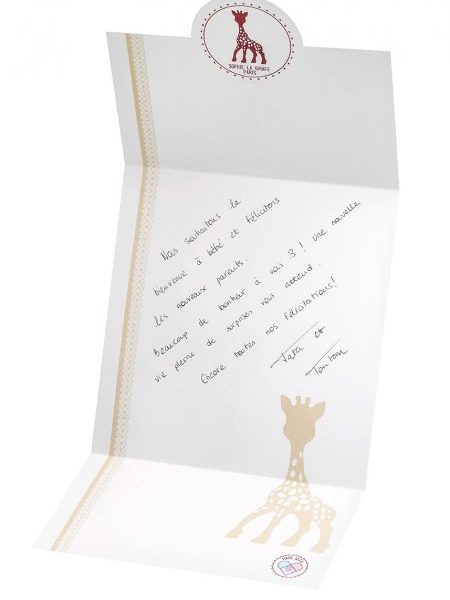 SOPHIE LA GIRAFE
PARIS
Nous souhaitons la
bienvenue à bébé et félicitons
les nouveaux parents.
Beaucoup de bonheur à vous 3 ! une nouvelle
vie pleine de surprises vous attend.
Encore toutes nos félicitations!
et
Tonton